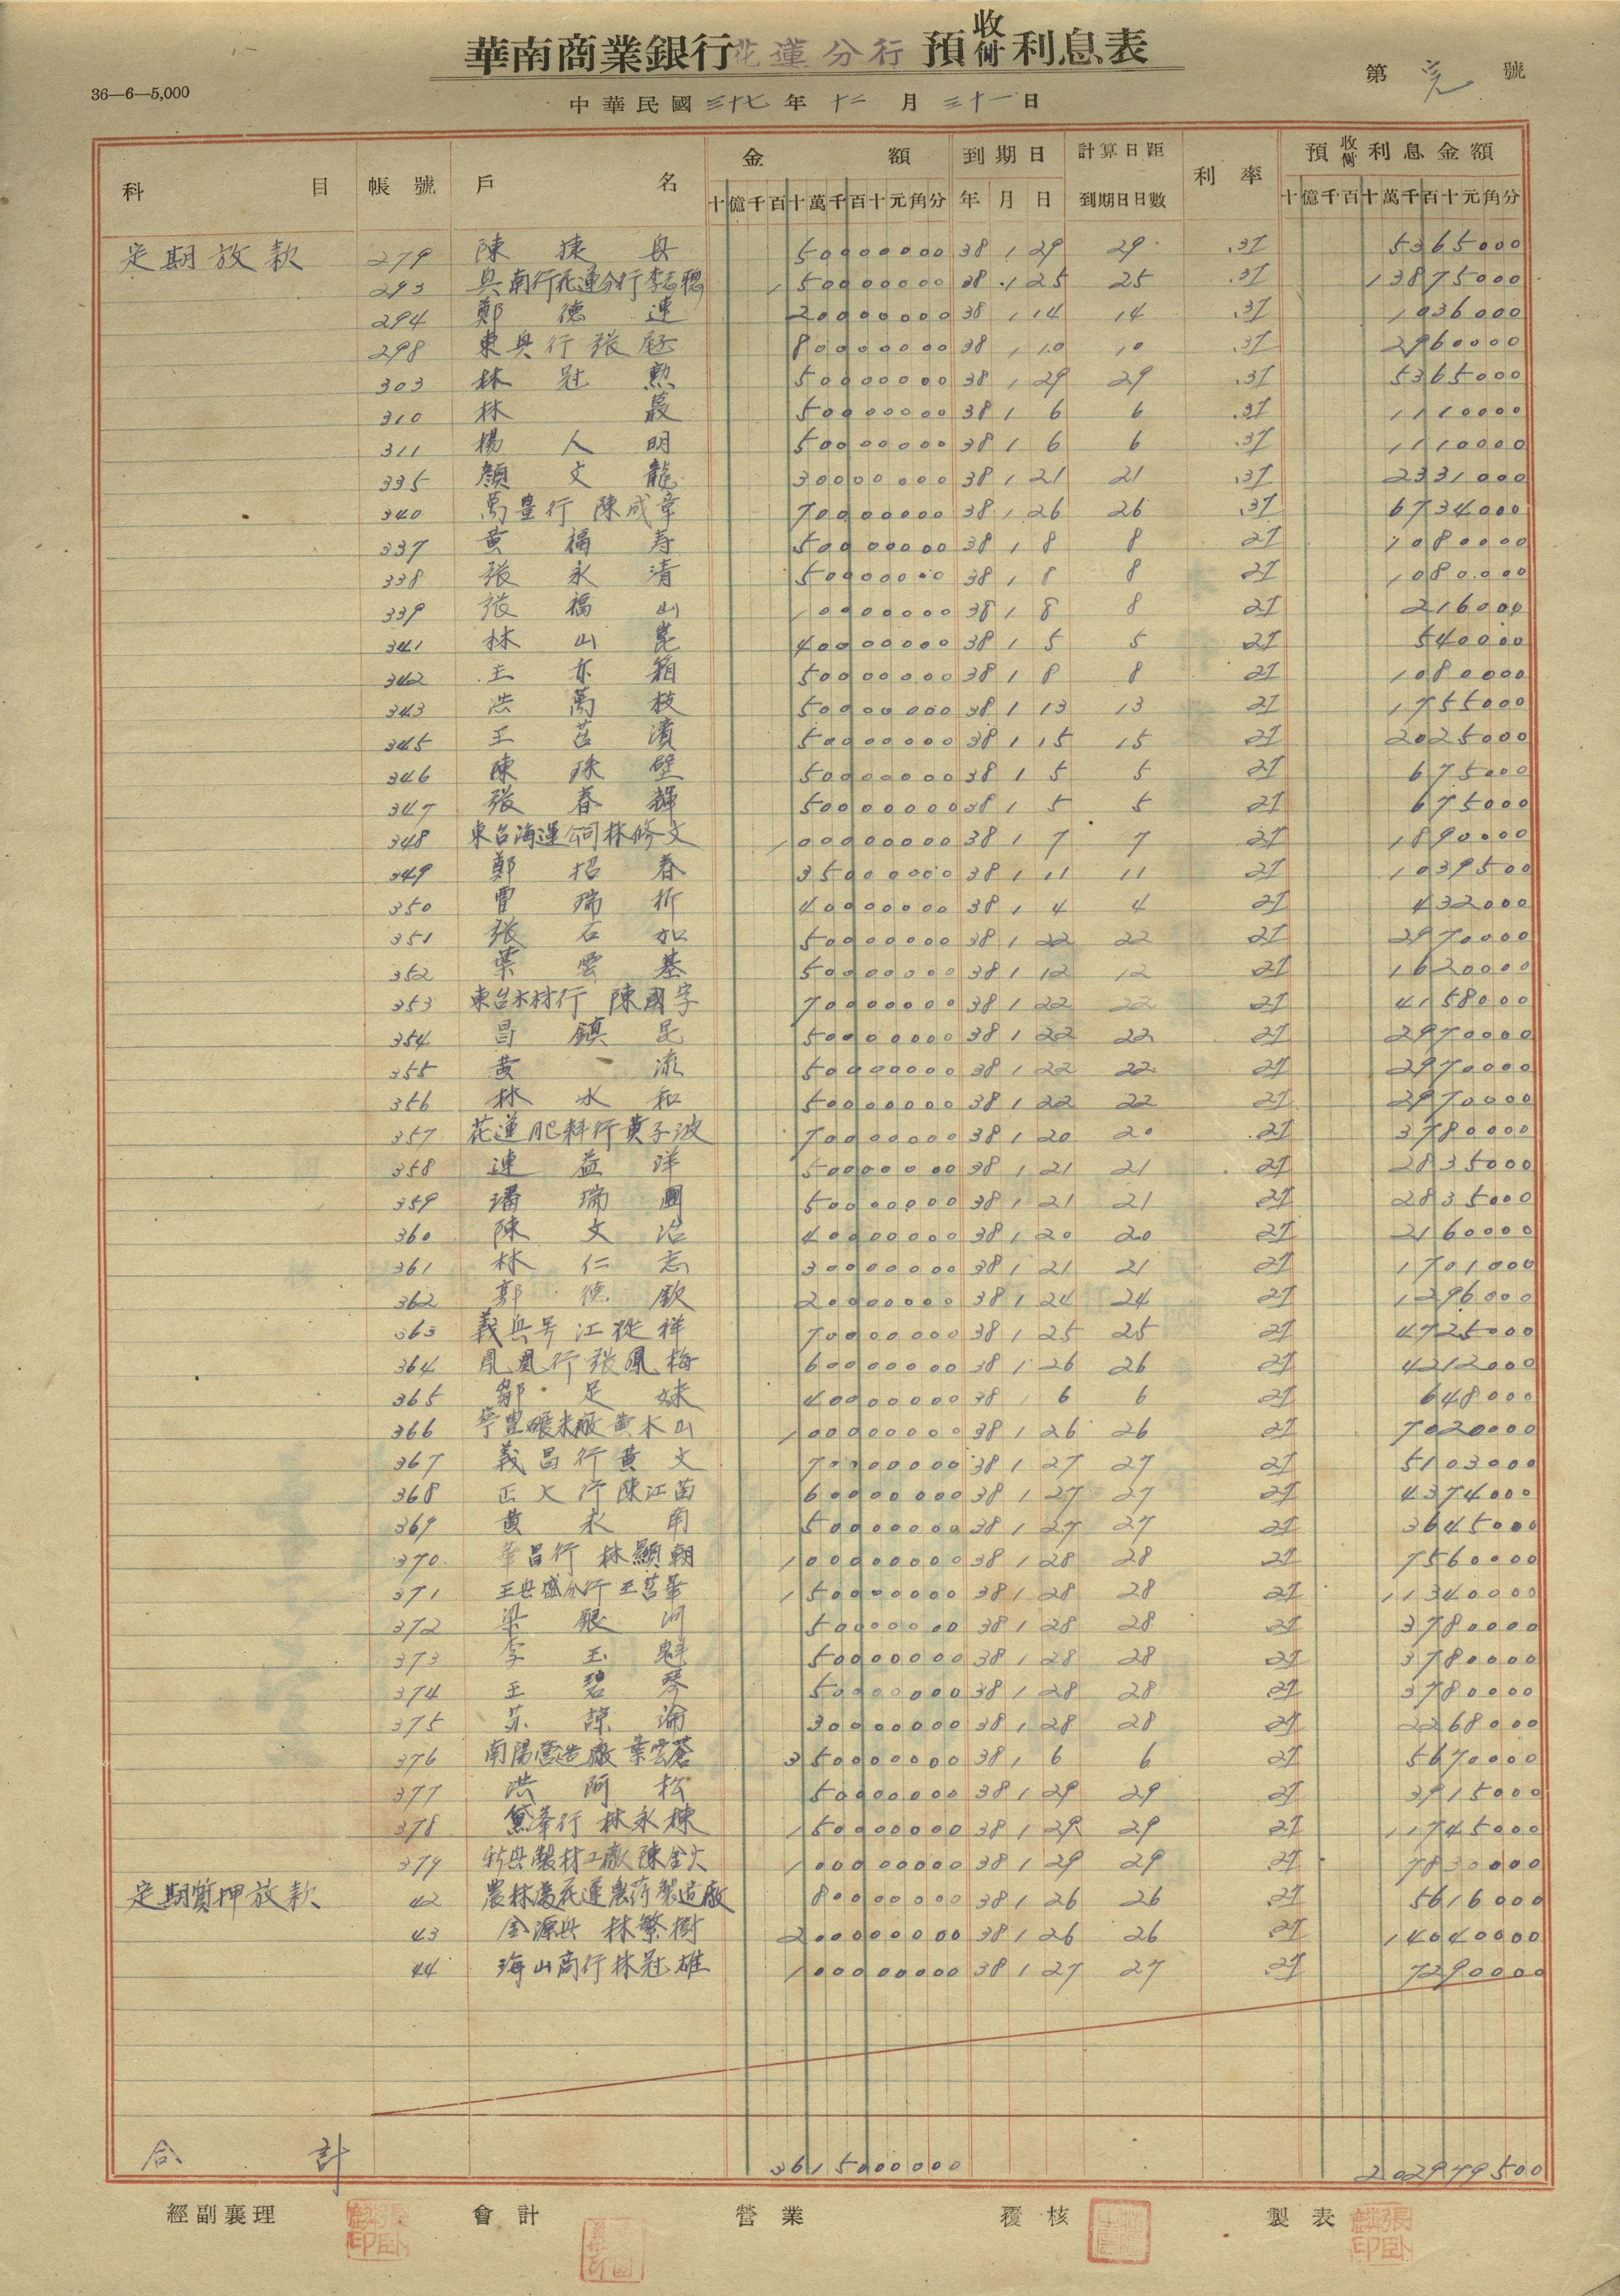 華南商業銀行花蓮分行 預收付利息表
36—6—5,000
第 完 號
中華民國三十七年十二月三十一日
科目 帳號 戶名 金額 到期日 計算日距到期日日數 利率 預收付利息金額
十億千百十萬千百十元角分 年 月 日 十億千百十萬千百十元角分
定期放款 279 陳捷興 50000000 38 1 29 29 .37 5365000
293 興南行花蓮分行李志聰 150000000 38 1 25 25 .37 13875000
294 鄭德連 20000000 38 1 14 14 .37 1036000
298 東興行張 80000000 38 1 10 10 .37 2960000
303 林冠勲 50000000 38 1 29 29 .37 5365000
310 林 50000000 38 1 6 6 .37 1110000
311 楊人明 50000000 38 1 6 6 .37 1110000
335 顏文龍 30000000 38 1 21 21 .37 2331000
340 萬豊行 陳成章 70000000 38 1 26 26 .37 6734000
337 黃福寿 50000000 38 1 8 8 27 1080000
338 張永清 50000000 38 1 8 8 27 1080000
339 張福山 10000000 38 1 8 8 27 216000
341 林山崑 40000000 38 1 5 5 27 540000
342 王亦箱 50000000 38 1 8 8 27 1080000
343 洪萬枝 50000000 38 1 13 13 27 1755000
345 王 50000000 38 1 15 15 27 2025000
346 陳珠壁 50000000 38 1 5 5 27 675000
347 張春輝 50000000 38 1 5 5 27 675000
348 東台海運公司林修文 100000000 38 1 7 7 27 1890000
349 鄭招春 35000000 38 1 11 11 27 1039500
350 曾瑞折 40000000 38 1 4 4 27 432000
351 張石如 50000000 38 1 22 22 27 2970000
352 葉雲基 50000000 38 1 12 12 27 1620000
353 東台木材行 陳國字 70000000 38 1 22 22 27 4158000
354 昌鎮昆 50000000 38 1 22 22 27 2970000
355 黃流 50000000 38 1 22 22 27 2970000
356 林水和 50000000 38 1 22 22 27 2970000
357 花蓮肥料行黃子波 70000000 38 1 20 20 27 3780000
358 連益洋 50000000 38 1 21 21 27 2835000
359 潘瑞圃 50000000 38 1 21 21 27 2835000
360 陳文治 40000000 38 1 20 20 27 2160000
361 林仁志 30000000 38 1 21 21 27 1701000
362 郭德欽 20000000 38 1 24 24 27 1296000
363 義興号 江從祥 70000000 38 1 25 25 27 4725000
364 鳳凰行張鳳梅 60000000 38 1 26 26 27 4212000
365 鄒足妹 40000000 38 1 6 6 27 648000
366 寧豊碾米廠黃木山 100000000 38 1 26 26 27 7020000
367 義昌行黃文 70000000 38 1 27 27 27 5103000
368 正大行陳江苗 60000000 38 1 27 27 27 4374000
369 黃永南 50000000 38 1 27 27 27 3645000
370 華昌行 林顯朝 100000000 38 1 28 28 27 7560000
371 王興盛分行王莒 150000000 38 1 28 28 27 11340000
372 梁銀河 50000000 38 1 28 28 27 3780000
373 李玉魁 50000000 38 1 28 28 27 3780000
374 王碧琴 50000000 38 1 28 28 27 3780000
375 苏諒淪 30000000 38 1 28 28 27 2268000
376 南陽營造廠葉雲蒼 350000000 38 1 6 6 27 5670000
377 洪阿松 50000000 38 1 29 29 27 3915000
378 黛峯行 林永棟 150000000 38 1 29 29 27 11745000
379 新興製材工廠陳金火 100000000 38 1 29 29 27 7830000
定期質押放款 42 農林處花蓮農荷製造廠 80000000 38 1 26 26 27 5616000
43 金源興 林繁樹 200000000 38 1 26 26 27 14040000
44 海山商行林冠雄 100000000 38 1 27 27 27 7290000
合計 3615000000 202949500
經副襄理 會計 營業 覆核 製表